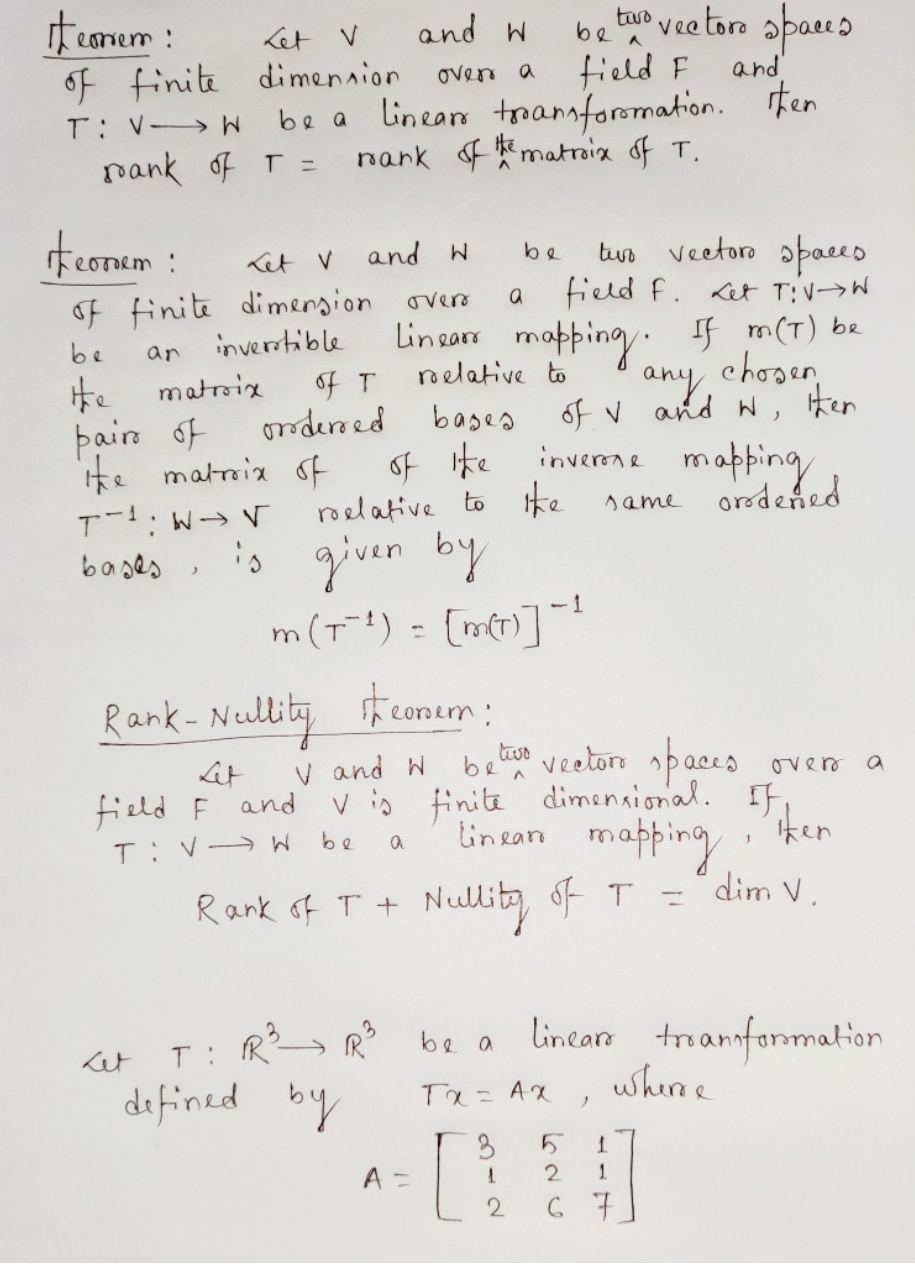 Theorem : Let V and W be two vector spaces
of finite dimension over a field F and
T : V → W be a linear transformation. Then
rank of T = rank of the matrix of T.
Theorem : Let V and W be two vector spaces
of finite dimension over a field F. Let T : V → W
be an invertible linear mapping. If m(T) be
the matrix of T relative to any chosen
pair of ordered bases of V and W, then
the matrix of of the inverse mapping
T⁻¹ : W → V relative to the same ordered
bases, is given by
m(T⁻¹) = [m(T)]⁻¹
Rank-Nullity Theorem :
Let V and W be two vector spaces over a
field F and V is finite dimensional. If
T : V → W be a linear mapping, then
Rank of T + Nullity of T = dim V.
Let T : ℝ³ → ℝ³ be a linear transformation
defined by Tx = Ax, where
A = [ 3 5 1
1 2 1
2 6 7 ]